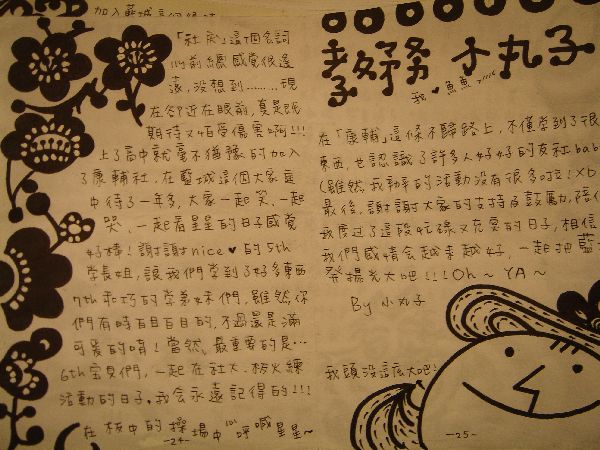 加入藍城這個
「社展」這個名詞
以前總感覺很遙
遠,沒想到………現
在卻近在眼前,真是既
期待又怕受傷害啊!!!
上了高中就毫不猶豫的加入
了康輔社,在藍城這個大家庭
中待了一年多,大家一起笑、一起
哭、一起看星星的日子感覺
好棒!謝謝nice♥的5th
學長姐,讓我們學到了好多東西
7th乖巧的學弟妹們,雖然你
們有時百目百目的,不過還是滿
可愛的唷!當然、最重要的是…
6th寶貝們,一起在社大、板火練
活動的日子,我會永遠記得的!!!
在板中的操場中心呼喊星星~
-24-
小丸子
我♥魚魚
在「康輔」這條不歸路上,不僅學到了很
東西,也認識了許多人好好的友社bab
(雖然我辦的活動沒有很多啦!XD
最後,謝謝大家的支持及鼓勵,陪
我度過了這段忙碌又充實的日子,相信
我們感情會越來越好,一起把藍
發揚光大吧!!!Oh~YA~
By 小丸子
我頭沒這麼大吧!
-25-